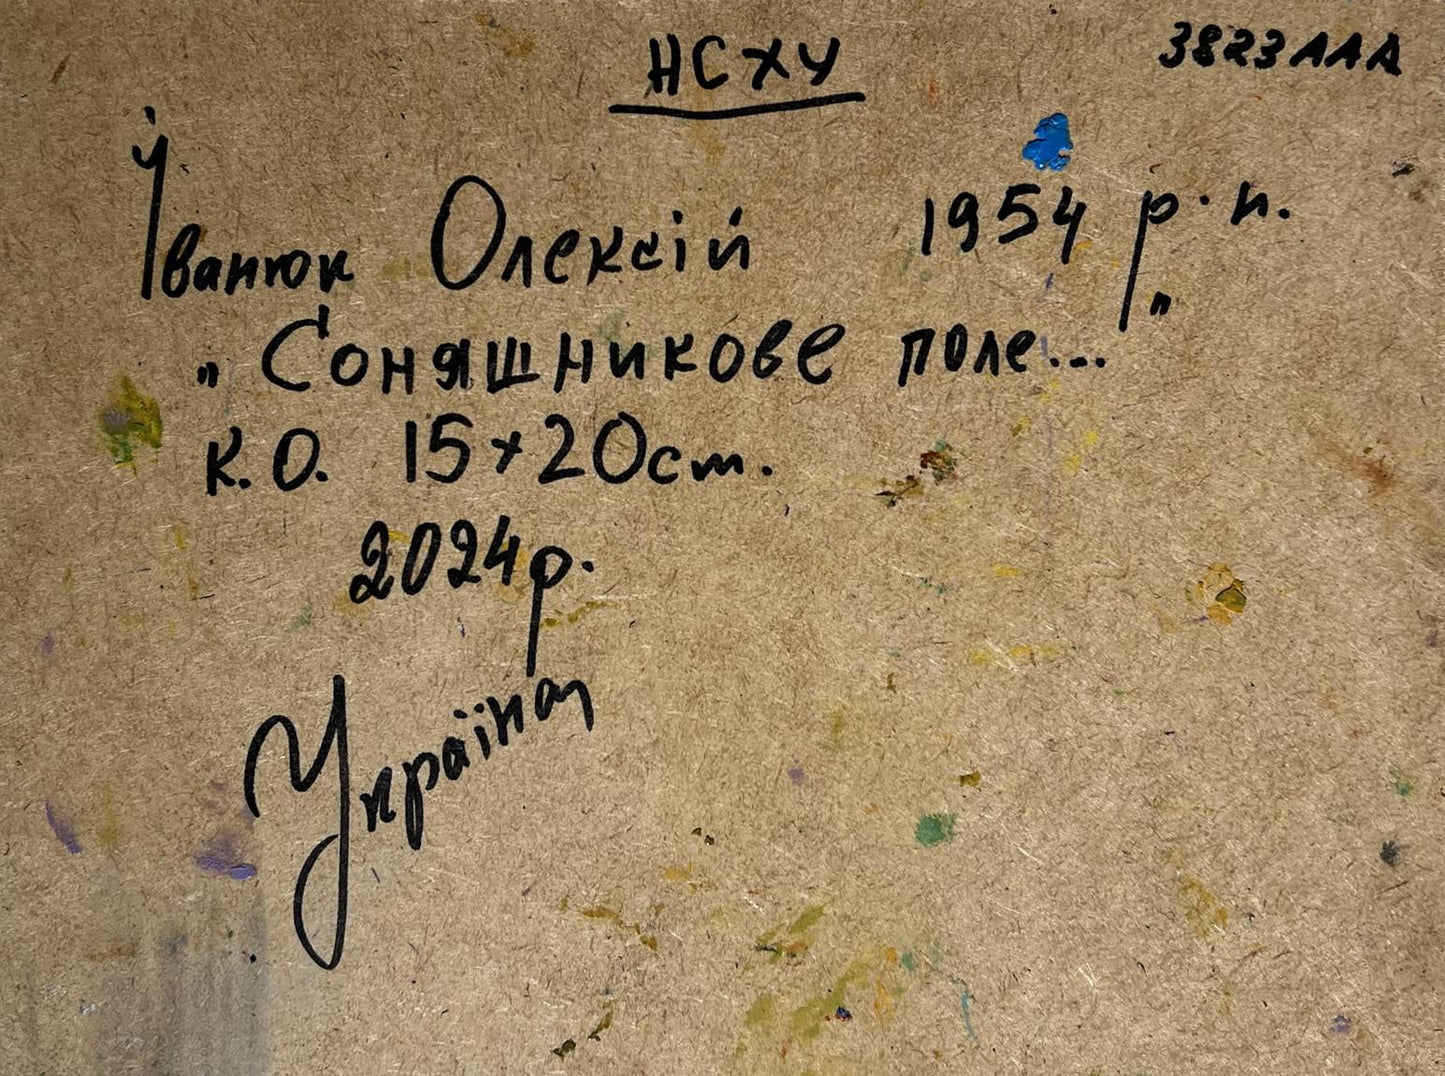 НСХУ
3823ААА
Іванюк Олексій 1954 р.н.
„Соняшникове поле..."
К.О. 15×20 ст.
2024р.
Україна